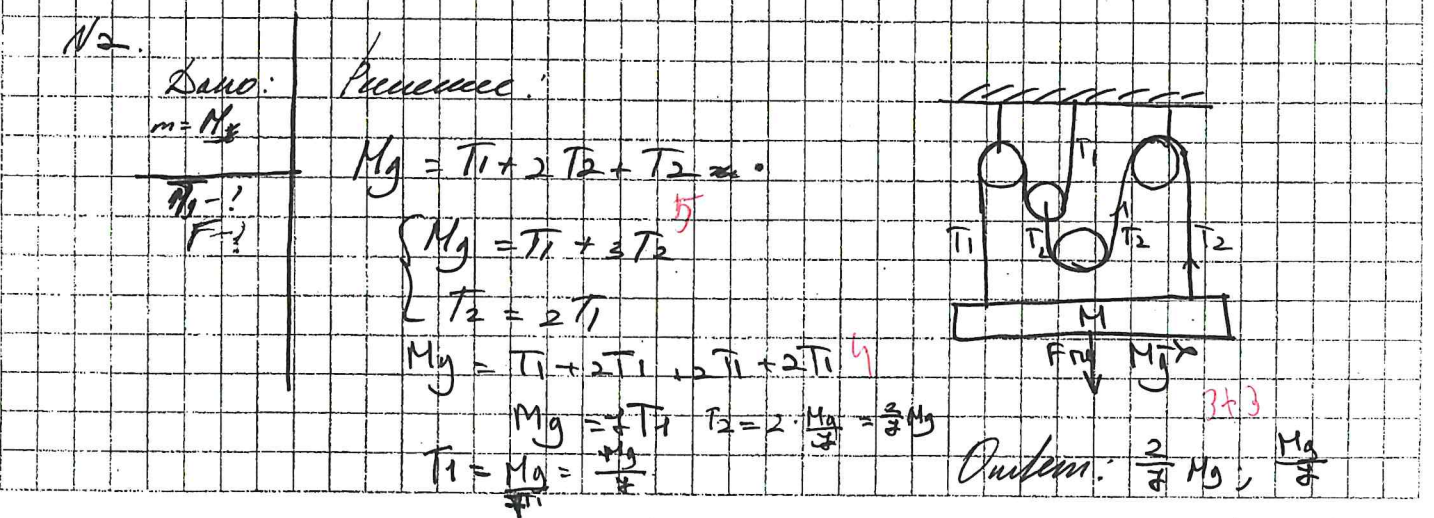 N2.
Дано:
m = M
Mg - ?
F - ?
Решение:
Mg = T1 + 2T2 + T2
5
Mg = T1 + 3T2
T2 = 2T1
Mg = T1 + 2T1 + 2T1 + 2T1 4
Mg = 7T1 T2 = 2 · Mg/7 = 2/7 Mg
T1 = Mg/7T1 = Mg/7
T1
T1 T2 T2 T2
M
Mg
3+3
Ответ: 2/7 Mg; Mg/7